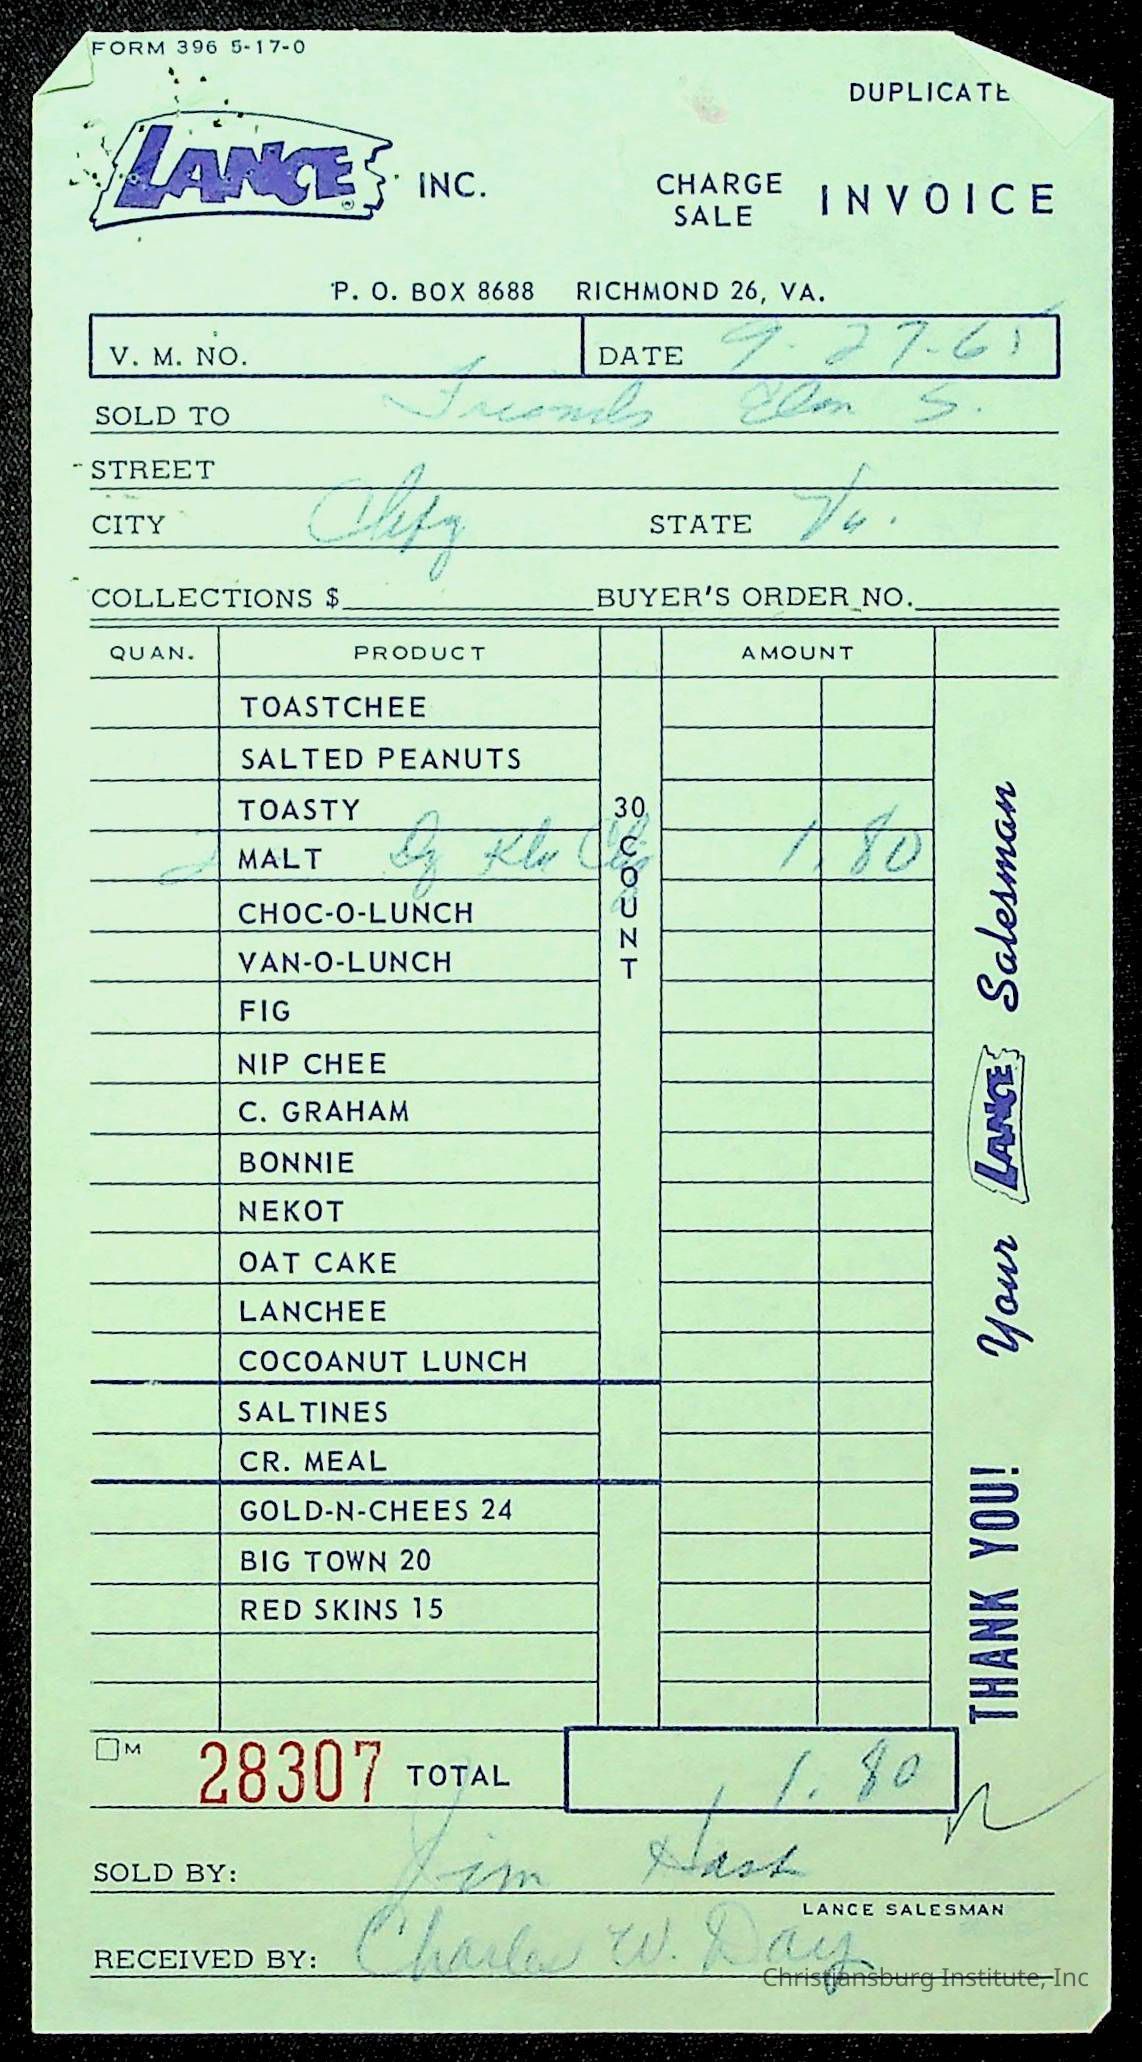 FORM 396 5-17-0
DUPLICATE
LANCE ® INC.
CHARGE SALE INVOICE
P. O. BOX 8688 RICHMOND 26, VA.
V. M. NO. DATE 9-27-65
SOLD TO Friends Elm S.
STREET
CITY Chbg STATE Va.
COLLECTIONS $ BUYER'S ORDER NO.
QUAN. PRODUCT AMOUNT
TOASTCHEE
SALTED PEANUTS
TOASTY
MALT 1.80
CHOC-O-LUNCH
VAN-O-LUNCH
FIG
NIP CHEE
C. GRAHAM
BONNIE
NEKOT
OAT CAKE
LANCHEE
COCOANUT LUNCH
SALTINES
CR. MEAL
GOLD-N-CHEES 24
BIG TOWN 20
RED SKINS 15
30 COUNT
THANK YOU! Your LANCE Salesman
M 28307 TOTAL 1.80
SOLD BY: Jim Hash
LANCE SALESMAN
RECEIVED BY: Charles W. Day
Christiansburg Institute, Inc